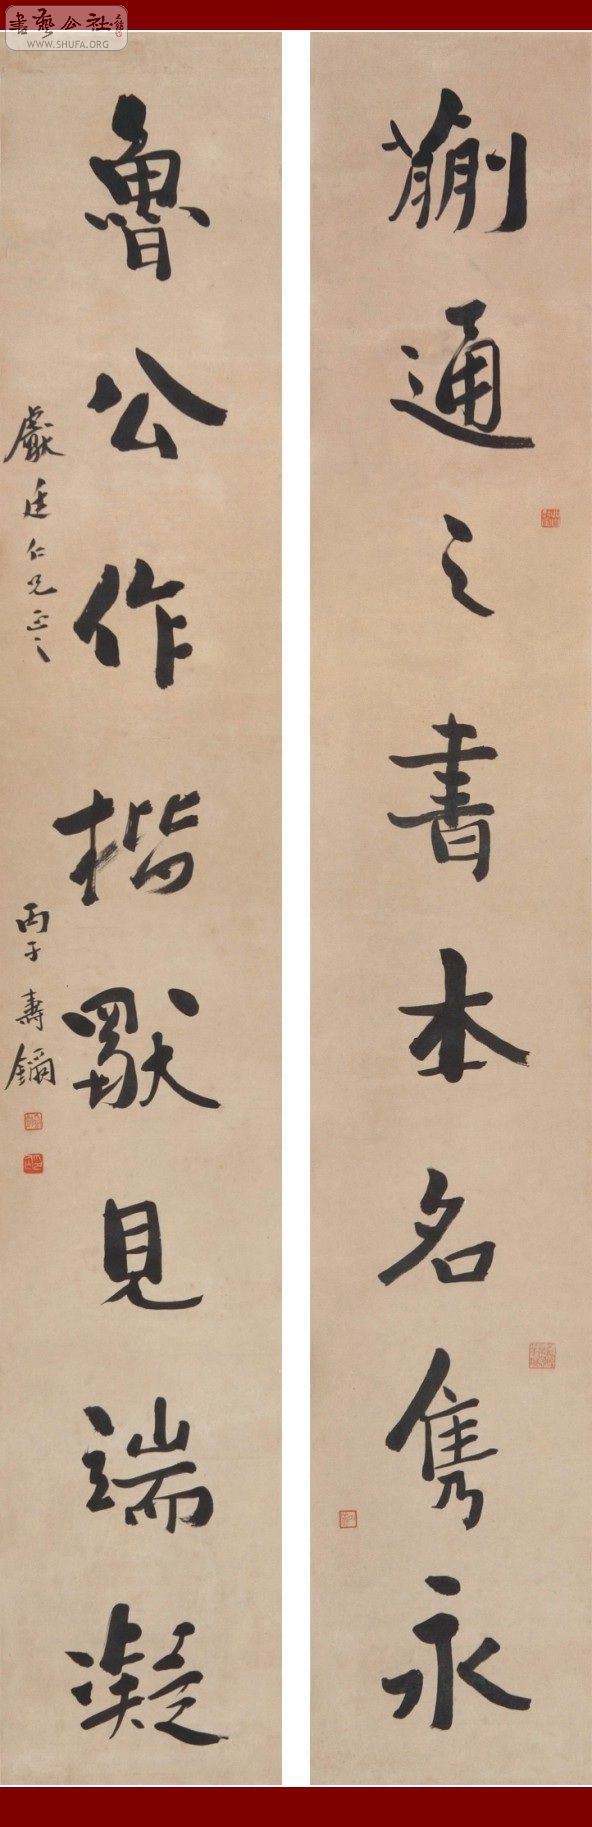 蒯通之書本名雋永
魯公作楷獸見端凝
獻廷仁兄正之
丙子 壽鏞
書藝公社
WWW.SHUFA.ORG